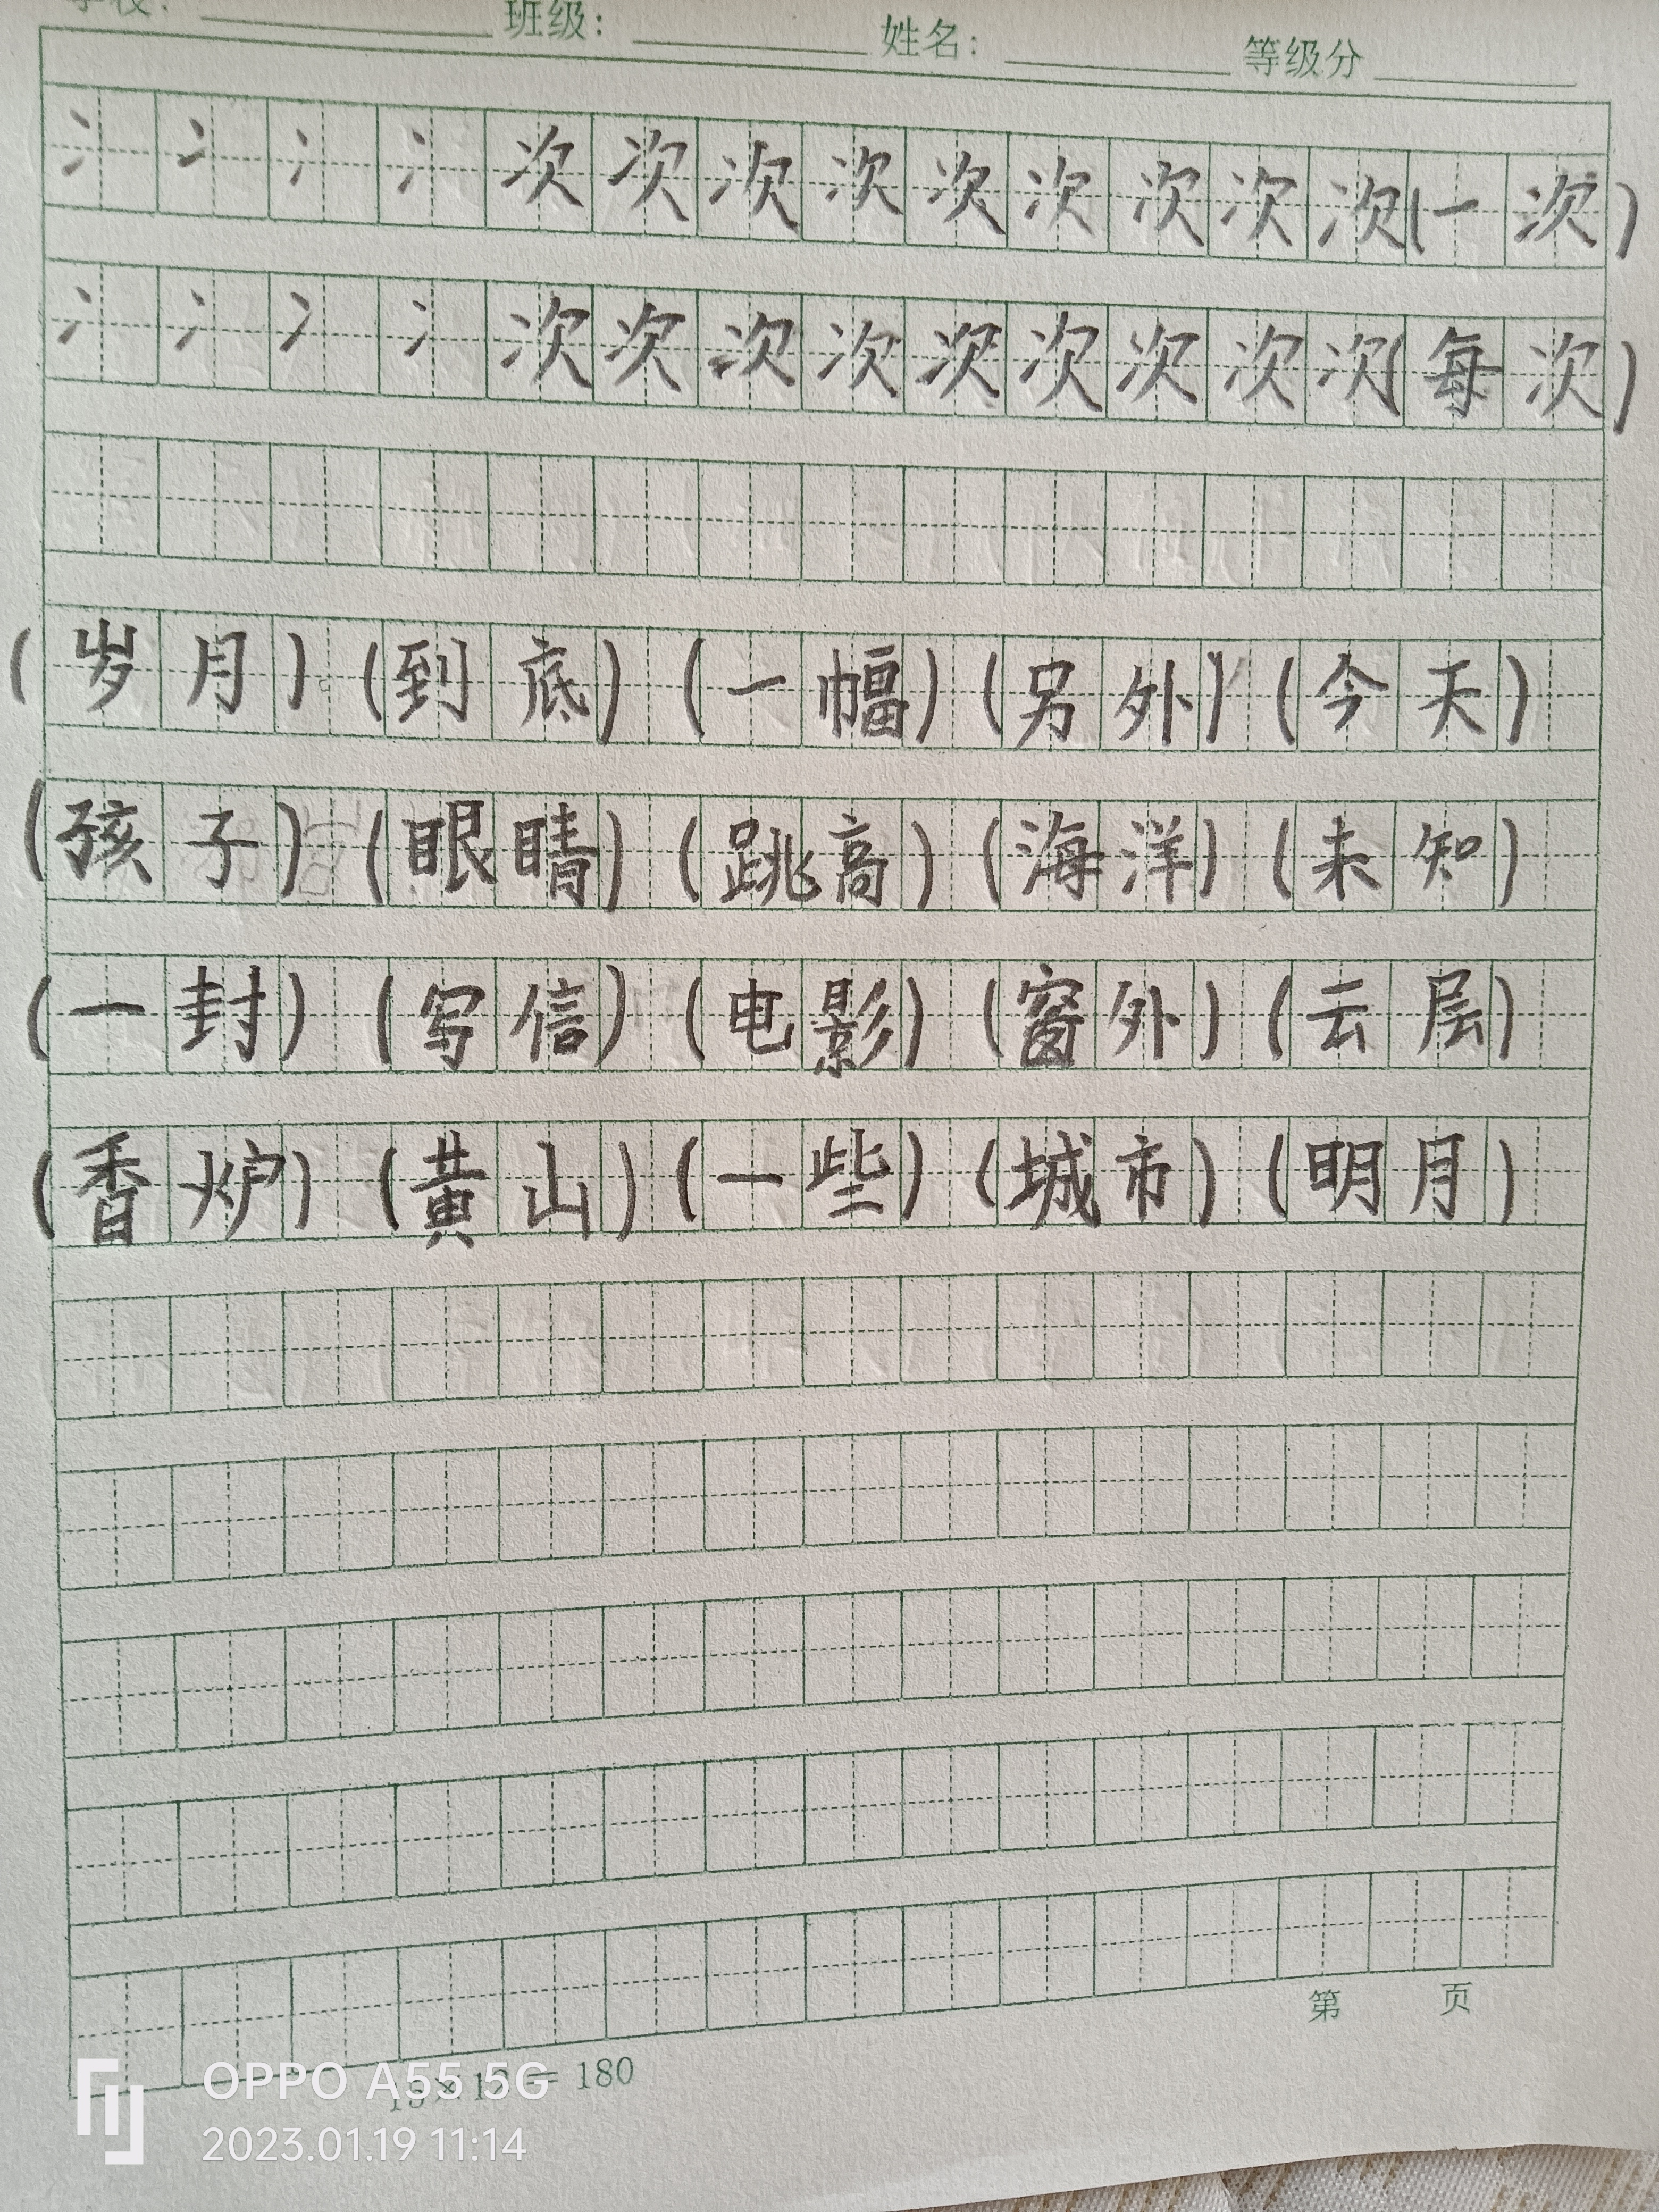 学校： 班级： 姓名： 等级分
冫 冫 冫 冫 次 次 次 次 次 次 次 次 次（一 次）
冫 冫 冫 冫 次 次 次 次 次 次 次 次 次（每 次）
（岁 月）。（到 底）（一 幅）（另 外）（今 天）
（孩 子）（眼 睛）（跳 高）（海 洋）（未 知）
（一 封）（写 信）（电 影）（窗 外）（云 层）
（香 炉）（黄 山）（一 些）（城 市）（明 月）
第 页
15×12＝180
OPPO A55 5G
2023.01.19 11:14